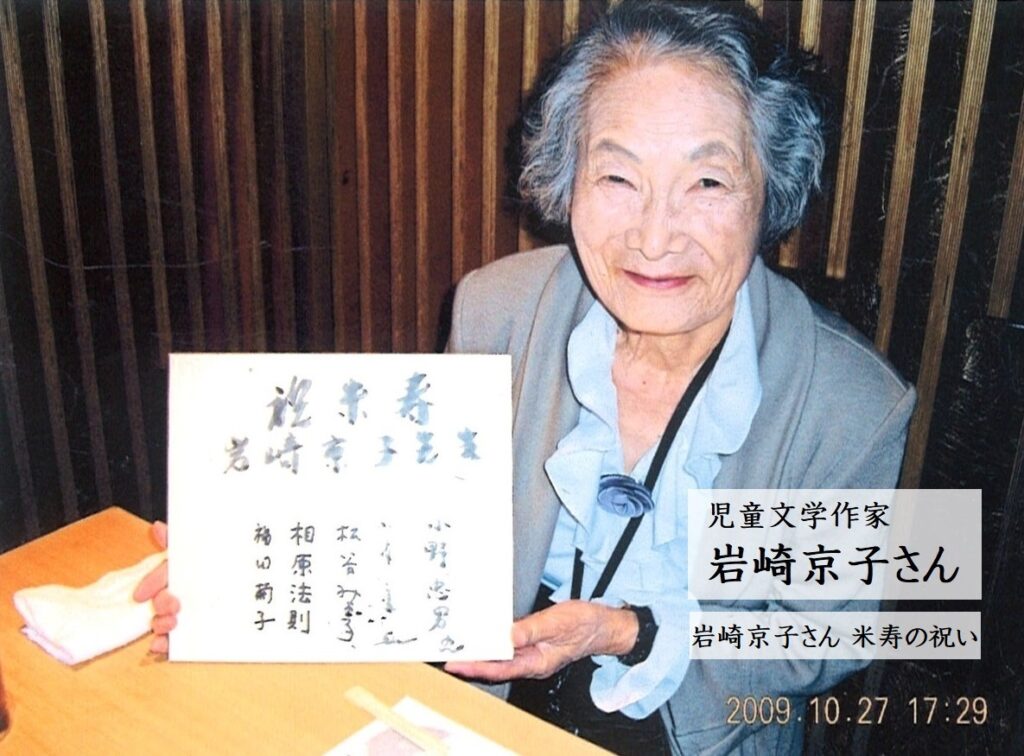 祝米寿
岩崎京子先生
小野忠男
松谷みよ子
相原法則
稲田菊子
児童文学作家
岩崎京子さん
岩崎京子さん 米寿の祝い
2009.10.27 17:29